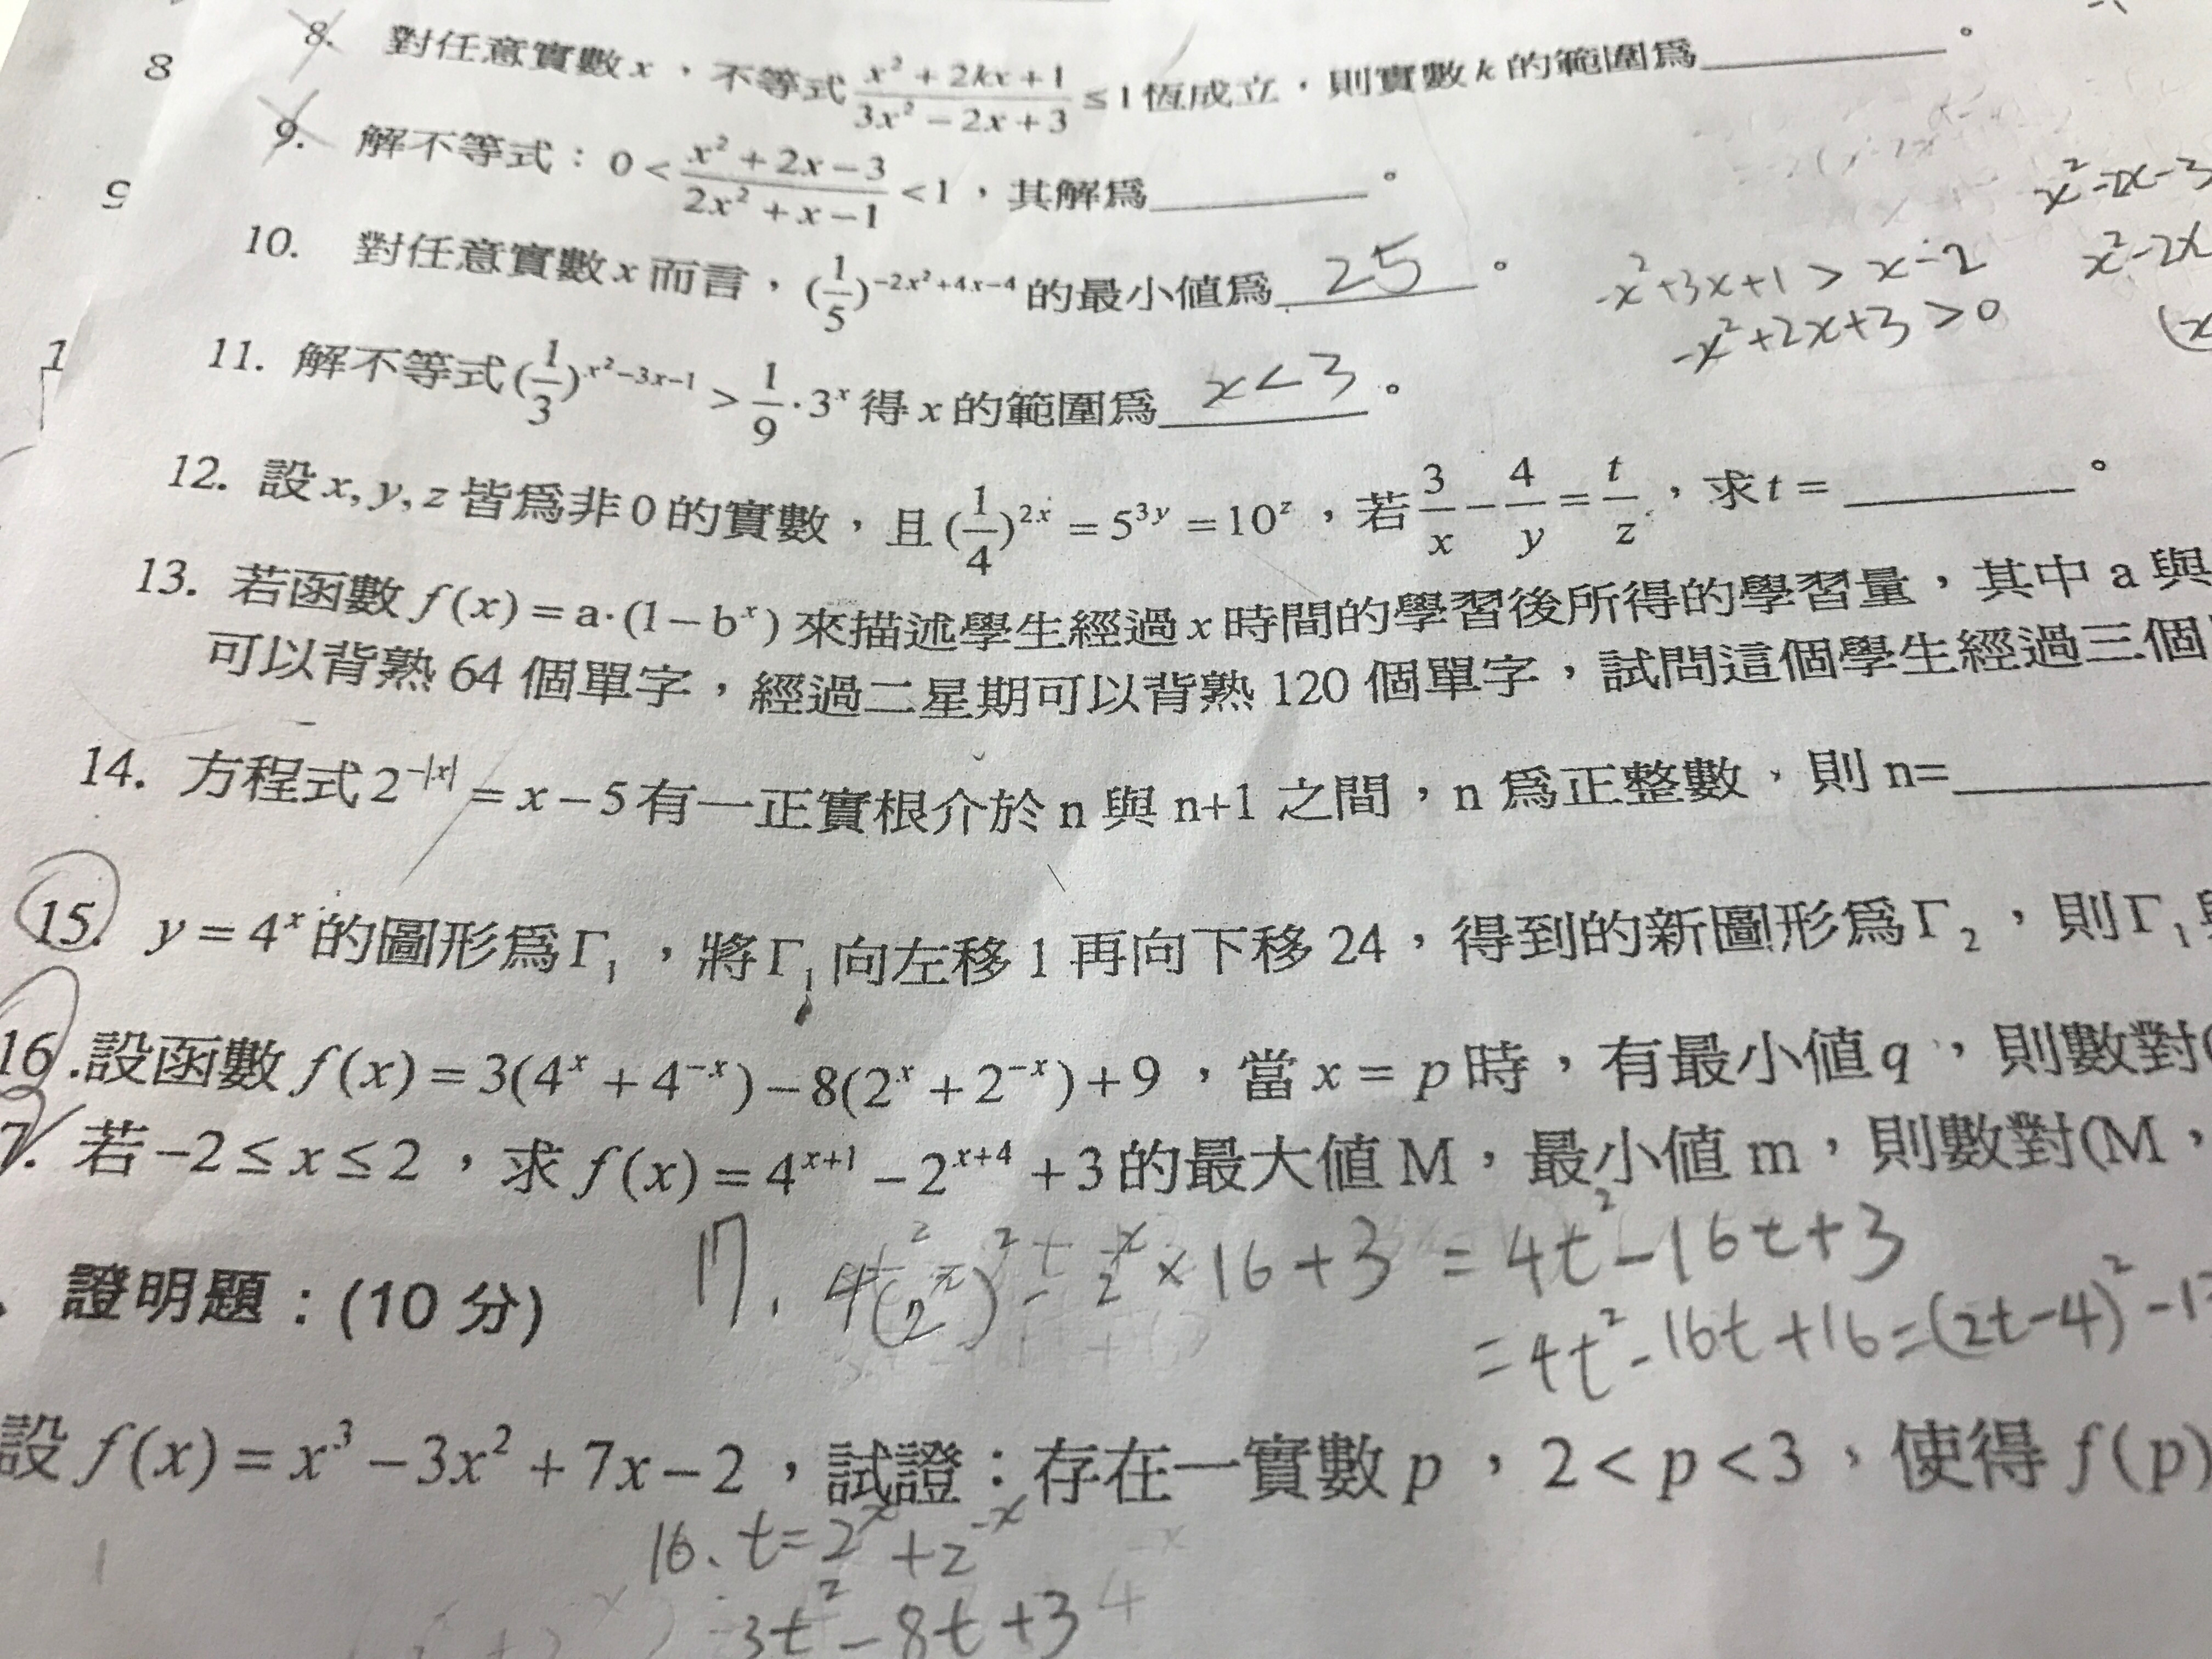 8. 對任意實數 x，不等式 (x² + 2kx + 1)/(3x² − 2x + 3) ≤ 1 恆成立，則實數 k 的範圍為________。
8
9. 解不等式：0 < (x² + 2x − 3)/(2x² + x − 1) < 1，其解為________。
9
x² − 2x − 3
10. 對任意實數 x 而言，(1/5)^(−2x²+4x−4) 的最小值為 25 。
-x² + 3x + 1 > x − 2
x² − 2x
-x² + 2x + 3 > 0
(x
1
11. 解不等式 (1/3)^(x²−3x−1) > 1/9 · 3^x 得 x 的範圍為 x < 3 。
12. 設 x, y, z 皆為非 0 的實數，且 (1/4)^(2x) = 5^(3y) = 10^z，若 3/x − 4/y = t/z，求 t = ________。
13. 若函數 f(x) = a·(1 − b^x) 來描述學生經過 x 時間的學習後所得的學習量，其中 a 與
可以背熟 64 個單字，經過二星期可以背熟 120 個單字，試問這個學生經過三個
14. 方程式 2^(−|x|) = x − 5 有一正實根介於 n 與 n+1 之間，n 為正整數，則 n=________
15. y = 4^x 的圖形為 Γ₁，將 Γ₁ 向左移 1 再向下移 24，得到的新圖形為 Γ₂，則 Γ₁
16.設函數 f(x) = 3(4^x + 4^(−x)) − 8(2^x + 2^(−x)) + 9，當 x = p 時，有最小值 q，則數對(
7. 若 −2 ≤ x ≤ 2，求 f(x) = 4^(x+1) − 2^(x+4) + 3 的最大值 M，最小值 m，則數對(M，
17. 4(2^x)² − 2^x × 16 + 3 = 4t² − 16t + 3
= 4t² − 16t + 16 = (2t − 4)² − 1
證明題：(10 分)
設 f(x) = x³ − 3x² + 7x − 2，試證：存在一實數 p，2 < p < 3，使得 f(p)
16. t = 2^x + 2^(−x)
3t² − 8t + 3